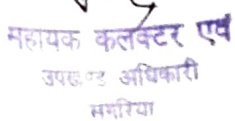 सहायक कलक्टर एवं
उपखण्ड अधिकारी
सगरिया